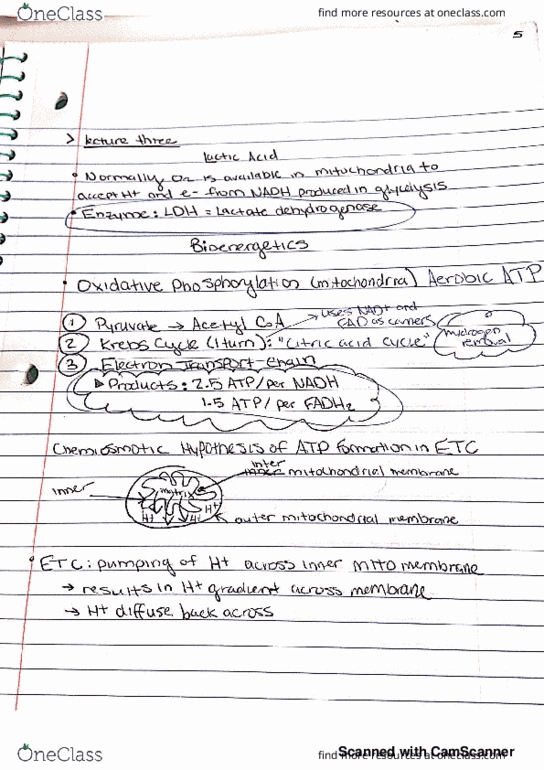 OneClass
find more resources at oneclass.com
5
> lecture three
lactic Acid
• Normally O2 is available in mitochondria to
accept H+ and e- from NADH produced in glycolysis
• Enzyme: LDH = lactate dehydrogenase
Bioenergetics
• Oxidative Phosphorylation (mitochondria) Aerobic ATP
→ uses NAD+ and
FAD as carriers
① Pyruvate → Acetyl CoA
② Krebs Cycle (1 turn): "Citric acid cycle"
hydrogen
removal
③ Electron Transport Chain
▶ Products: 2.5 ATP/per NADH
1.5 ATP/per FADH2
Chemiosmotic Hypothesis of ATP formation in ETC
inter
inner mitochondrial membrane
inner
matrix
H+ H+ H+
outer mitochondrial membrane
• ETC: pumping of H+ across inner mito membrane
→ results in H+ gradient across membrane
→ H+ diffuse back across
OneClass
find more resources at oneclass.com
Scanned with CamScanner